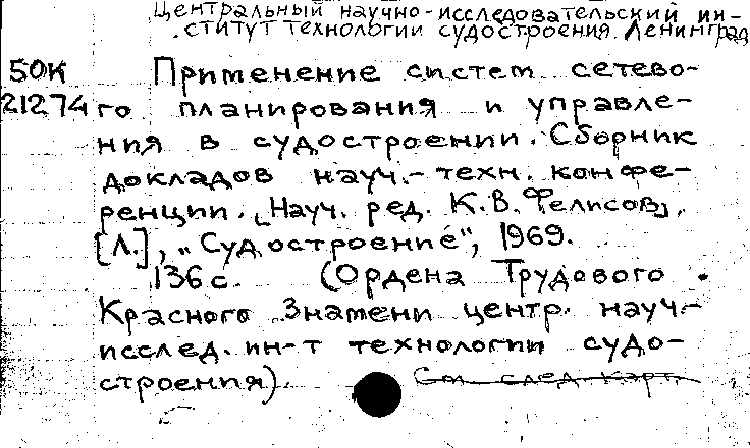 Центральный научно-исследовательский ин-
ститут технологии судостроения. Ленинград
50К Применение систем сетево-
21274 го планирования и управле-
ния в судостроении. Сборник
докладов науч.-техн. конфе-
ренции. [Науч. ред. К.В. Фелисов].
[Л.], „Судостроение", 1969.
136 с. (Ордена Трудового
Красного Знамени центр. науч.-
исслед. ин-т технологии судо-
строения).
См. след. карт.